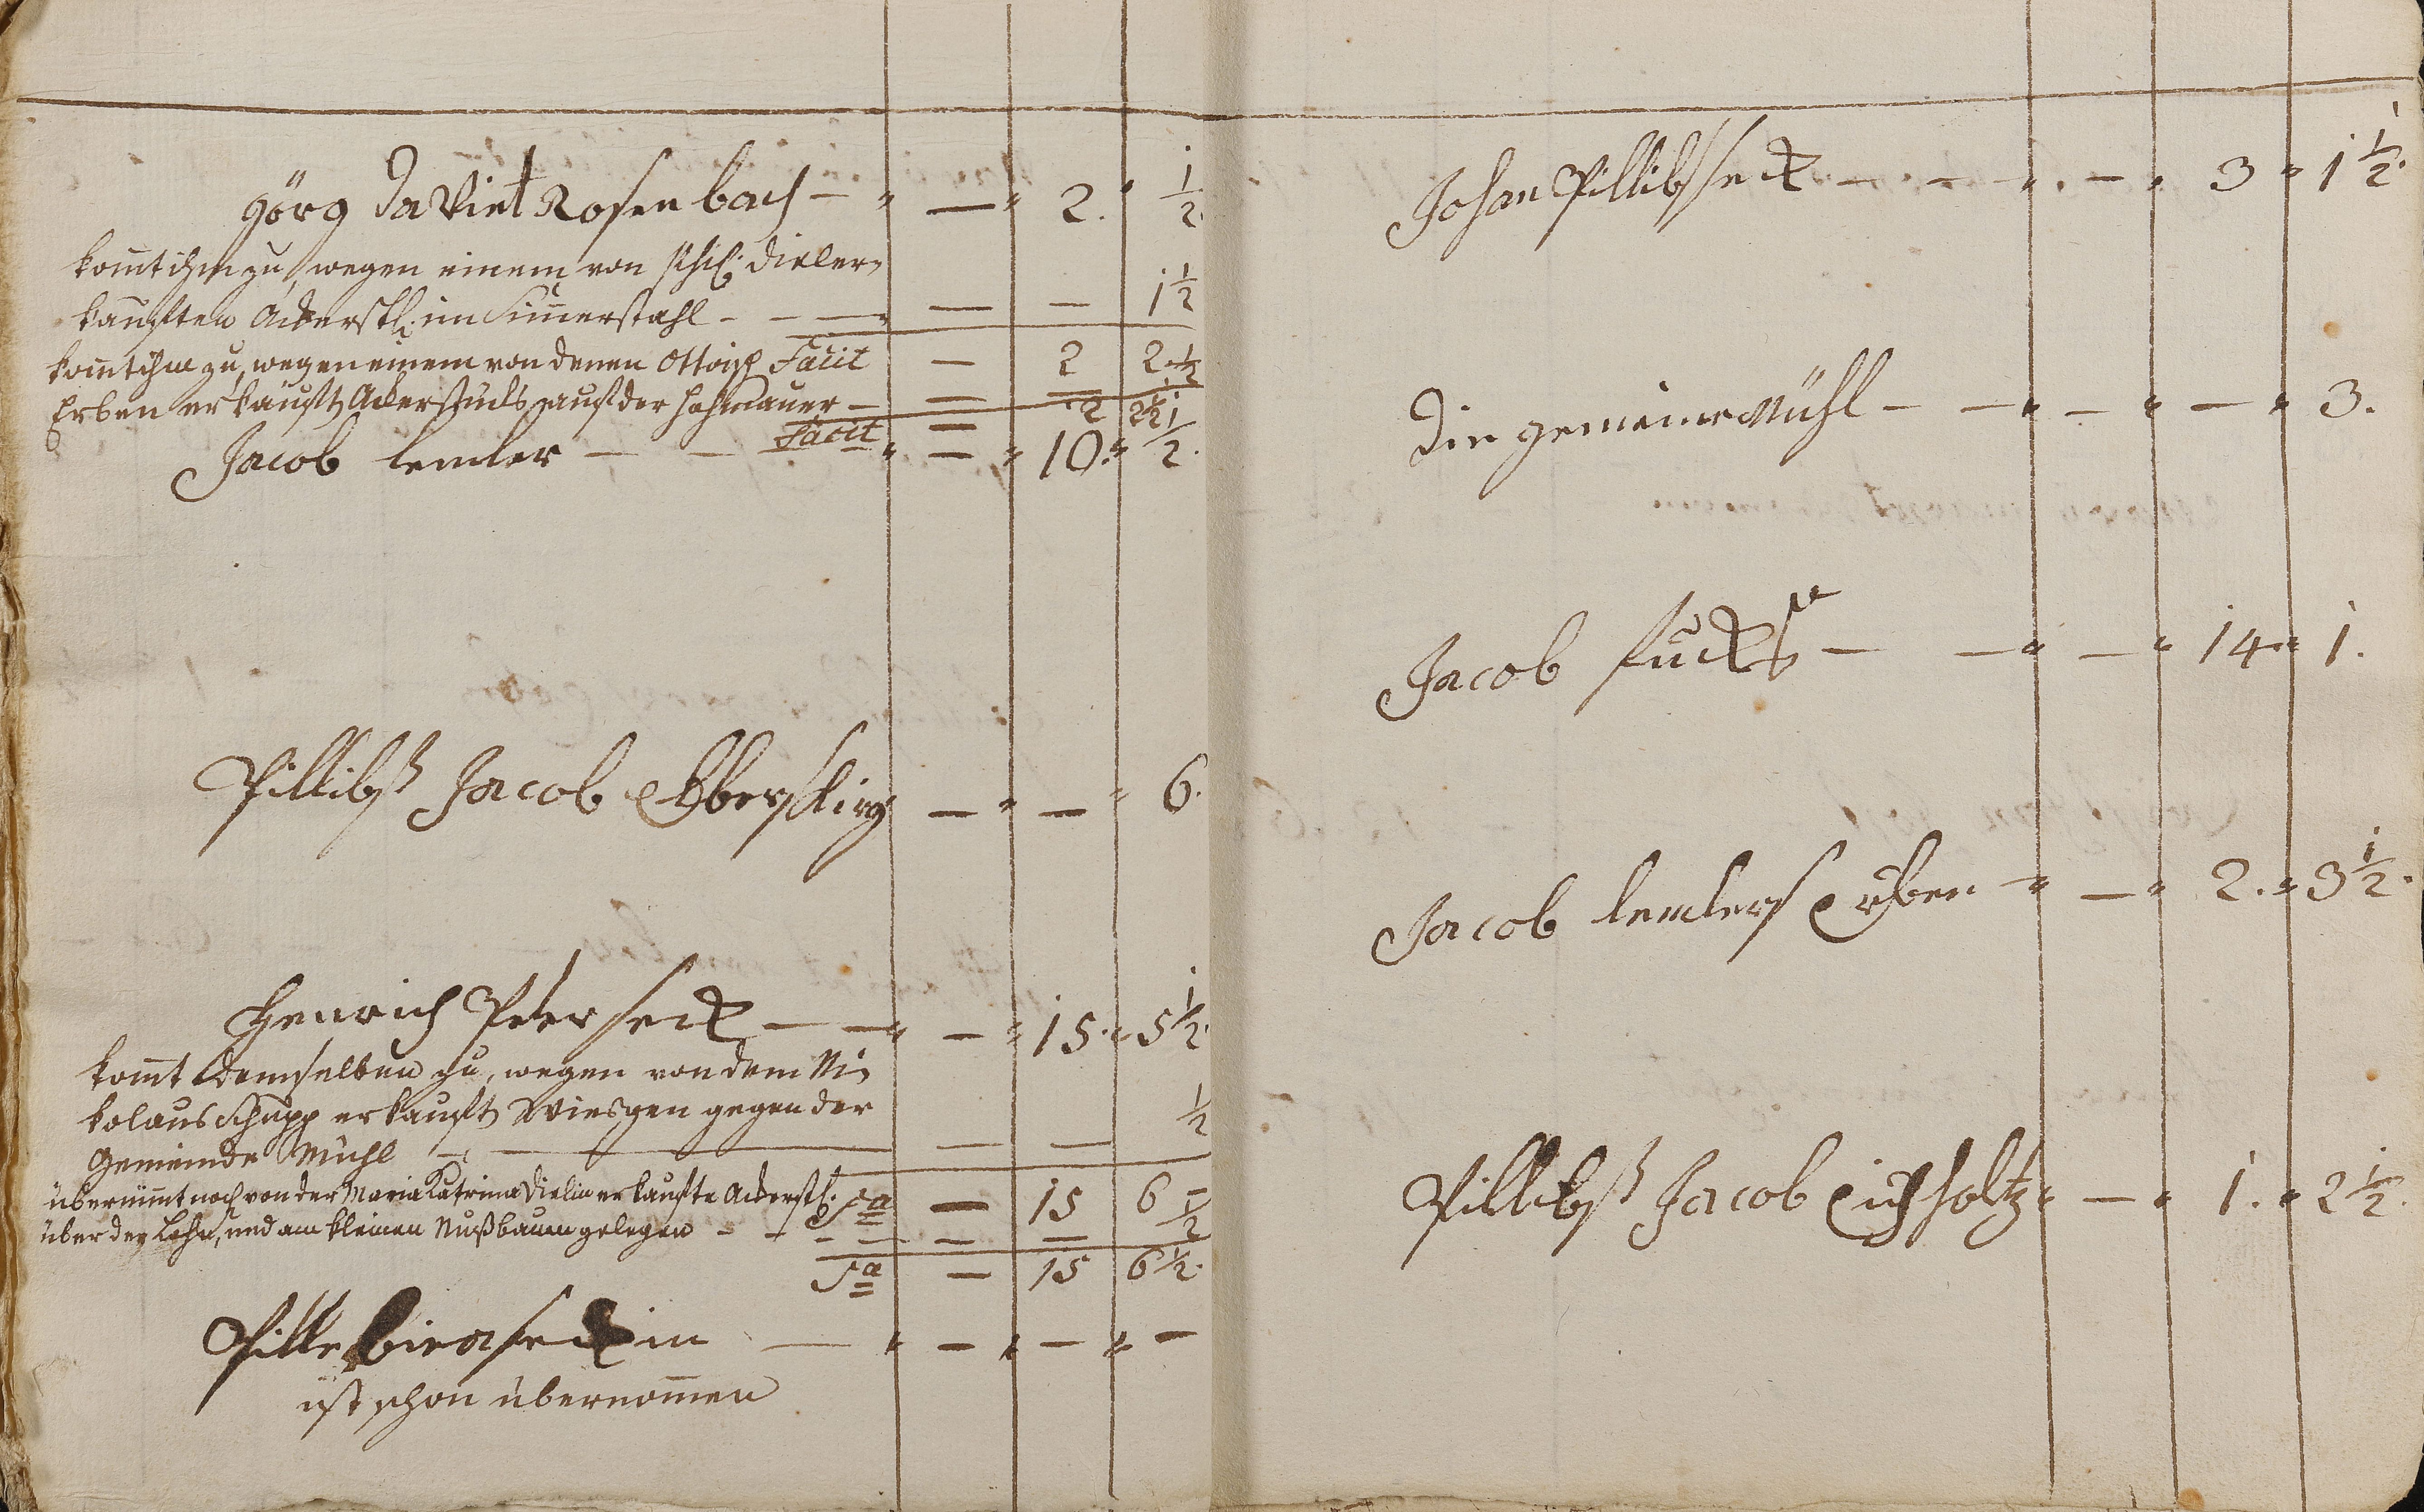 Görg Daviet Rosenbach — — 2. ½.
komt ihm zu, wegen einem von Phil: Dieler
kauften Ackerstk: im Simerstahl — — — 1½
komt ihm zu, wegen einem von denen Ottoisch Facit — 2 2½
Erben erkauft Ackerstücks auf der Hohmauer — — —
Facit 2 2½
Jacob lemler — — — 10. ½.
Pillibß Jacob Ebersking — — 6.
Henrich Peter Seck — — 15. 5½.
komt demselben zu, wegen von dem Ni
kolaus Schupp erkauft Wiesgen gegen der
Gemeinde Mühl — — — ½
übernimt noch von der Maria Katrina Dielin erkaufte Ackerstk. Sa — 15 6 —
über der Lahn, und am kleinen Nußbaum gelegen — — — ½
Sa — 15 6½.
Pille Seckin — — — —
ist schon übernomen
Johan Pillibs Seck — — — 3 1½.
Die gemeine Mühl — — — — 3.
Jacob fucks — — — 14 1.
Jacob lemlers Erben — — 2. 3½.
Pillibß Jacob Eichholtz — 1. 2½.